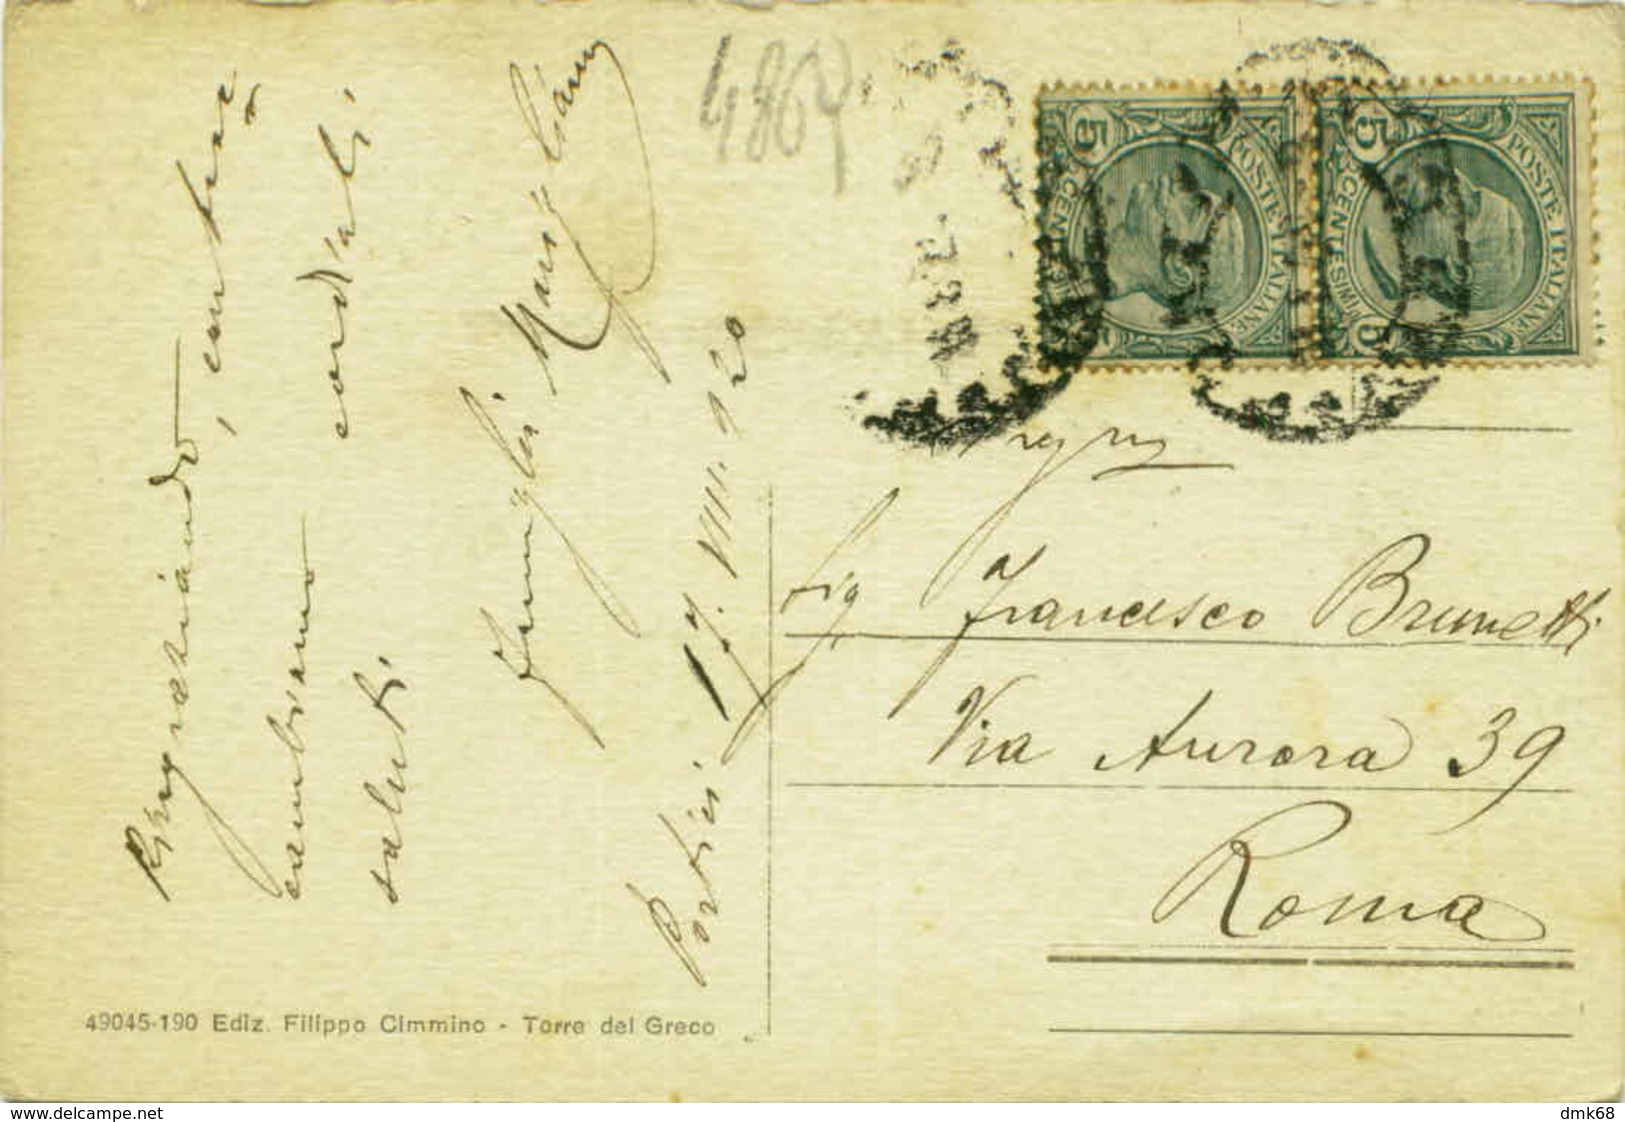 Ringraziando, contrac
cambiamo cordiali
saluti
Famiglia
Portici 17. VIII. 920
4864
POSTE ITALIANE
5 CENTESIMI 5
POSTE ITALIANE
5 CENTESIMI 5
Sig Francesco Brunetti
Via Aurora 39
Roma
49045-190 Ediz. Filippo Cimmino - Torre del Greco
www.delcampe.net
dmk68